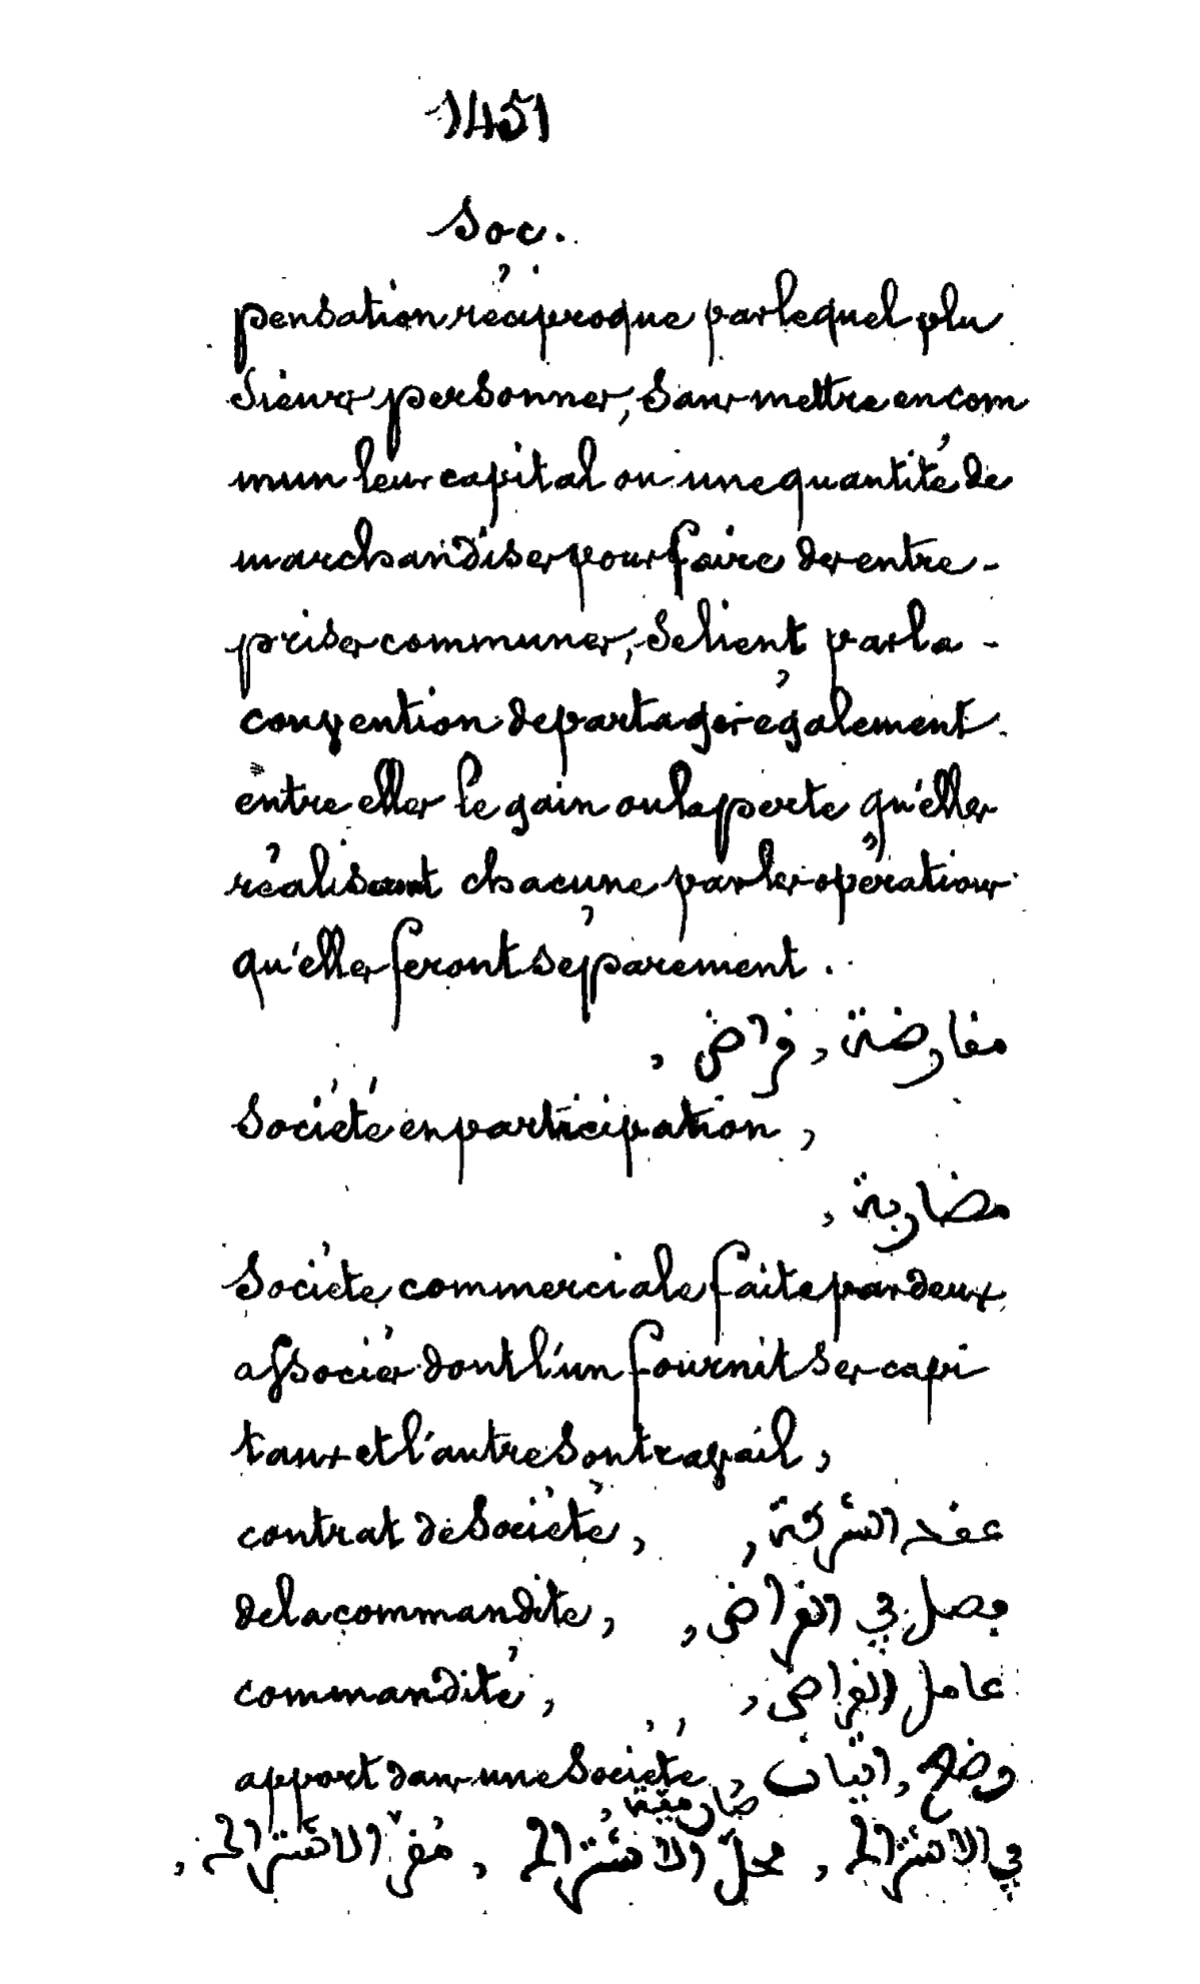 1451
Soc.
pensation réciproque par lequel plu
sieurs personnes, sans mettre en com
mun leur capital ou une quantité de
marchandises pour faire des entre-
prises communes, se lient par la -
convention de partager également
entre elles le gain ou la perte qu'elles
réaliseront chacune par les opérations
qu'elles feront séparément.
مفاوضة, قراض,
Société en participation,
مضاربة,
Société commerciale faite par deux
associés dont l'un fournit ses capi
taux et l'autre son travail,
contrat de Société, عقد الشركة,
de la commandite, فصل في القراض,
commandité, عامل القراض,
apport dans une Société, وضع, اتيان
في الاشتراك, محل الاشتراك, مقر الاشتراك,